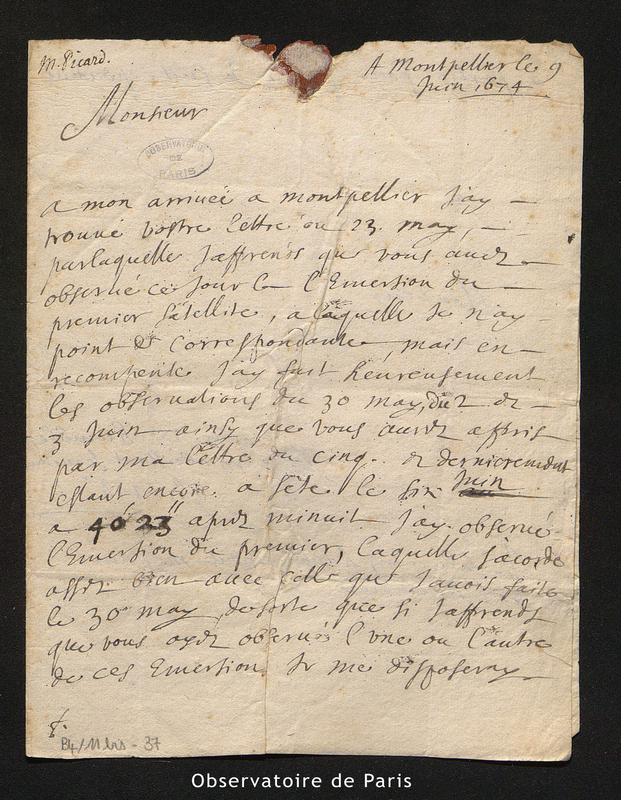 M. Picard.
A Montpellier le 9
Juin 1674
Monsieur
OBSERVATOIRE
DE
PARIS
a mon arriuée a montpellier J'ay
trouué vostre lettre du 23. may,
par laquelle J'apprends que vous auez
observé ce Jour la l'Emersion du
premier satellite, a laquelle Je n'ay
point de correspondante, mais en
recompense J'ay fait heureusement
les observations du 30 may, du 2 et
3 Juin ainsy que vous aurez appris
par ma lettre du cinq. et dernierement
estant encore a séte le six Juin
a 4° 23' apres minuit J'ay observé
l'Emersion du premier, laquelle s'acorde
assez bien auec celle que J'auois faite
le 30 may, de sorte que si J'apprends
que vous ayez observé l'vne ou l'autre
de ces Emersion Je me disposeray
B4/11 bis - 37
Observatoire de Paris